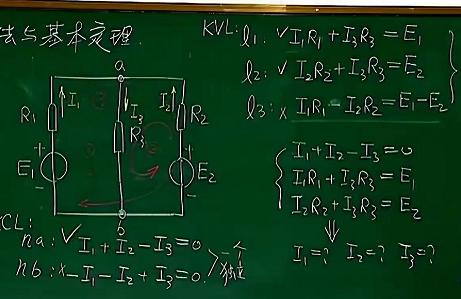 法与基本定理.
a
R1
I1
I3
R3
I2
R2
+
E1
-
+
E2
-
b
KCL:
na: √ I1 + I2 - I3 = 0
nb: x -I1 - I2 + I3 = 0
一个
独立
KVL: l1: √ I1R1 + I3R3 = E1
l2: √ I2R2 + I3R3 = E2
l3: x I1R1 - I2R2 = E1 - E2
I1 + I2 - I3 = 0
I1R1 + I3R3 = E1
I2R2 + I3R3 = E2
⇓
I1 = ? I2 = ? I3 = ?